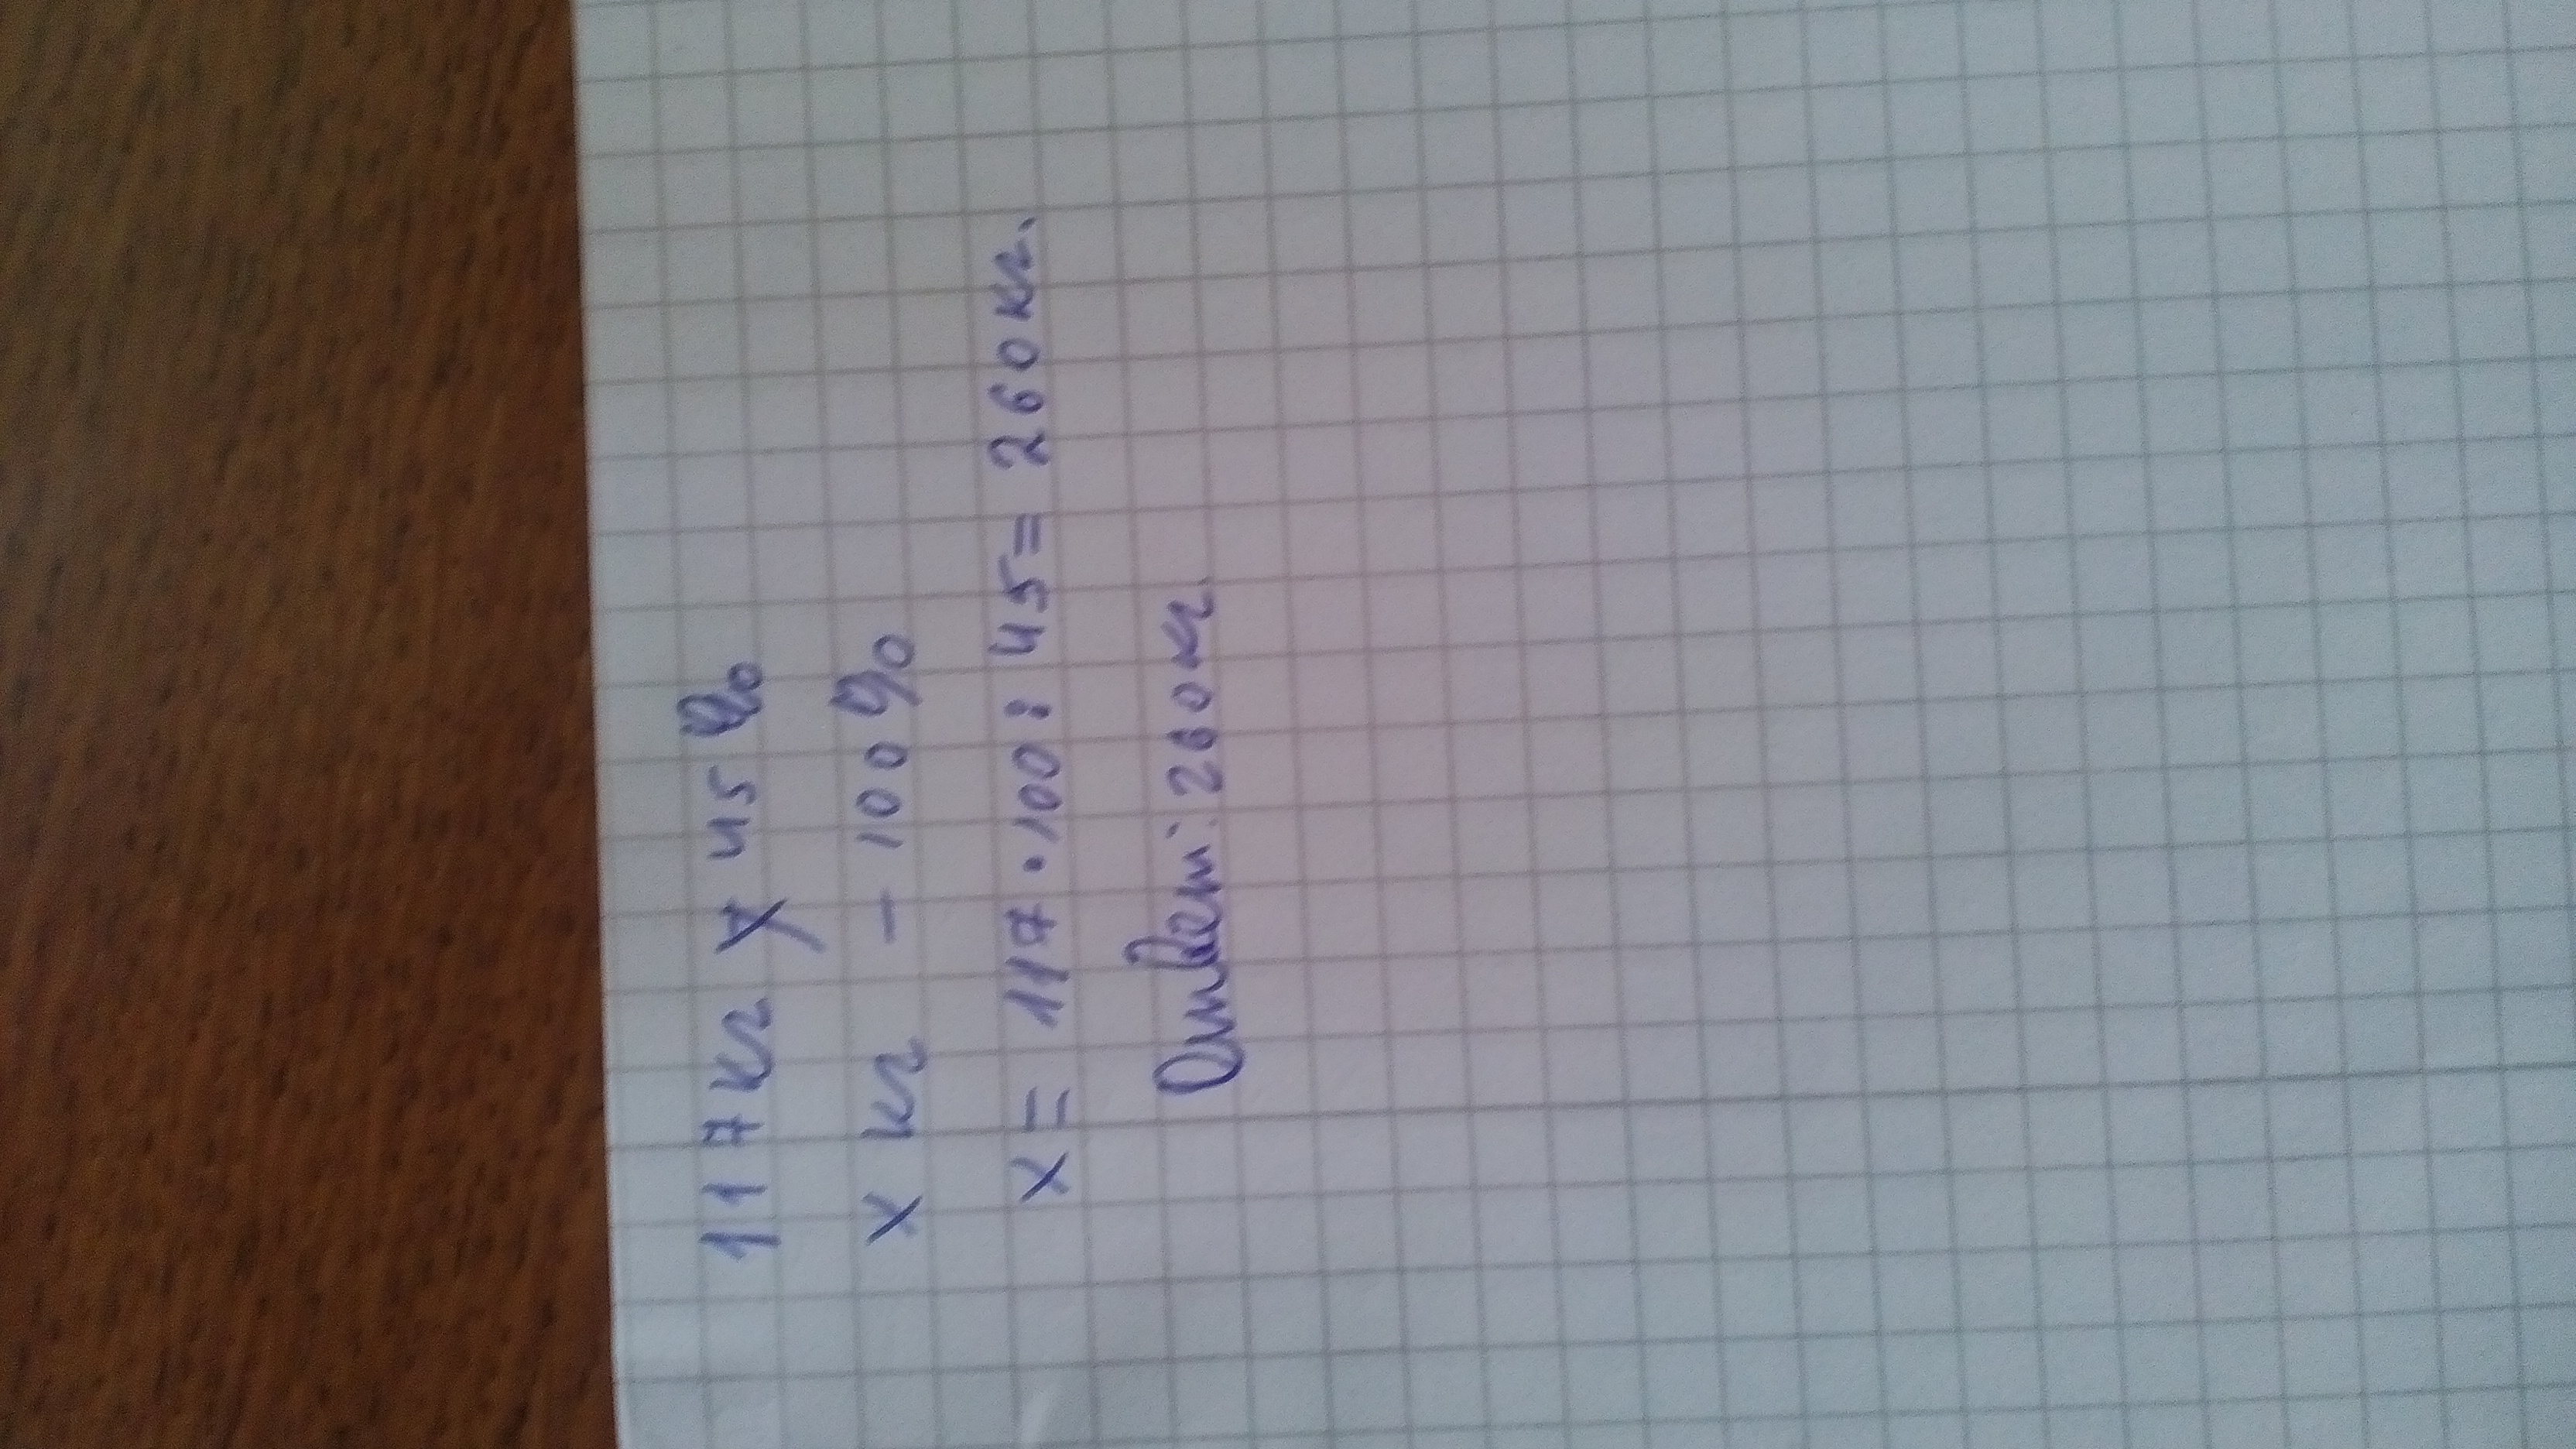 117кг х 45%
х кг - 100%
х = 117 · 100 : 45 = 260 кг.
Ответ: 260 кг.